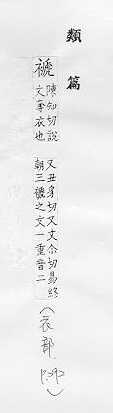 類篇
褫
陳知切說
文奪衣也
又丑豸切又丈尒切易終
朝三褫之文一重音二
(衣部